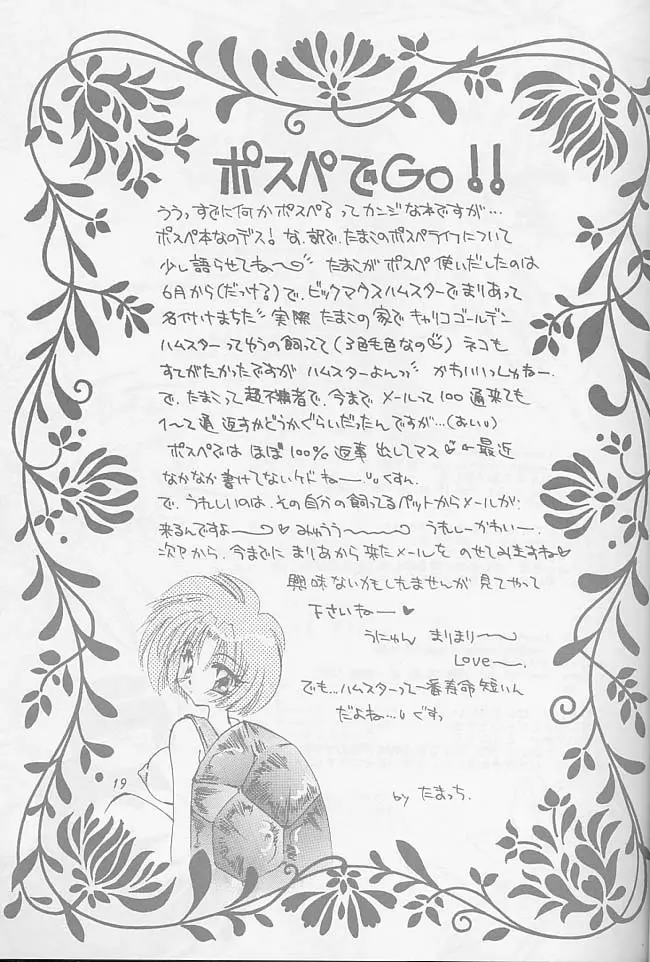 ポスペでGo!!
ううっすでに何かポスペるってカンジな本ですが…
ポスペ本なのデス! な、部で、たまこのポスペライフについて
少し語らせてね〜 たまこが ポスペ使いだしたのは
6月から(だっける)で、ビックマウスハムスターでまりあって
名付けまちた 実際 たまこの家でキャリコゴールデン
ハムスターってゆうの飼ってて(3色毛色なの) ネコも
すてがたかったですが ハムスターよんっ かわいいっしゅねー.
で、たまこって超不精者で、今まで メールって100通来ても
1〜て通 返すかどうかぐらいだったんですが…(おい)
ポスペでは ほぼ100%返事 出してマス ←最近
なかなか書けてないケドねー くすん.
で、うれしいのは、その自分の飼ってるペットからメールが
来るんですよー♡ みゅうう〜 うれしーかわいー.
次Pから、今までに まりあから来たメールを のせてみますね♡
興味ないかもしれませんが 見てやって
下さいねー♥
うにゅん まりまり〜
Love〜.
でも…ハムスターって一番寿命短いん
だよね… ぐすっ
19
by たまっち.